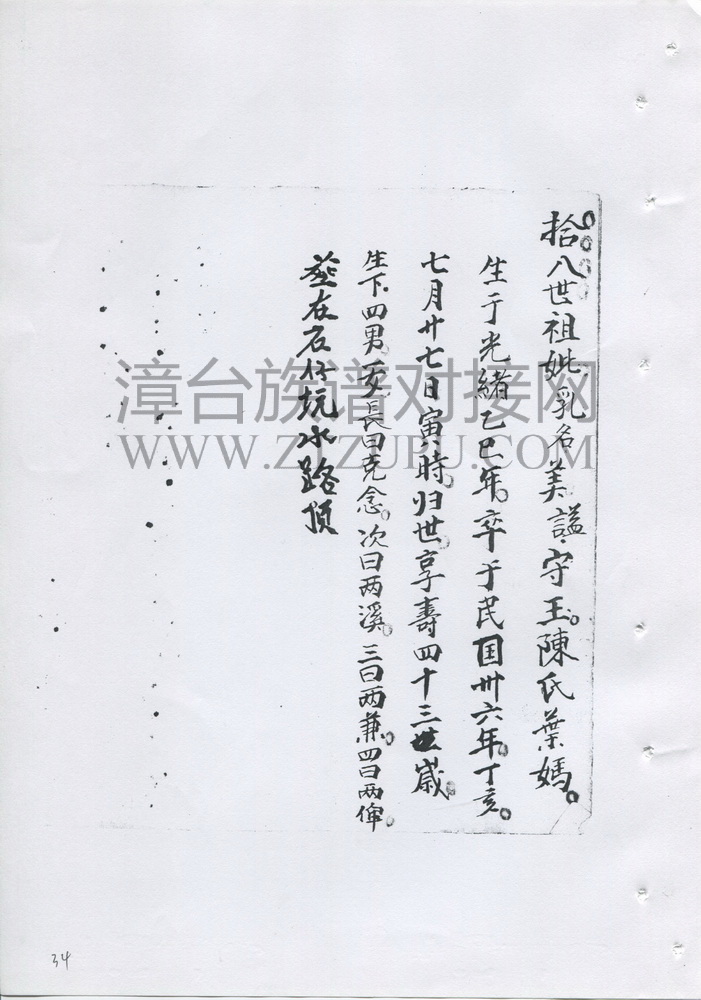 拾八世祖妣乳名美謚守王。陳氏葉媽。
生于光緒乙巳年。卒于民国卅六年。丁亥。
七月廿七日寅時。归世。享壽四十三歲。
生下四男。長曰克念。次曰两溪。三曰两兼。四曰两倕。
塟在石仔坑水路頂
漳台族谱对接网
WWW.ZTZUPU.COM
34